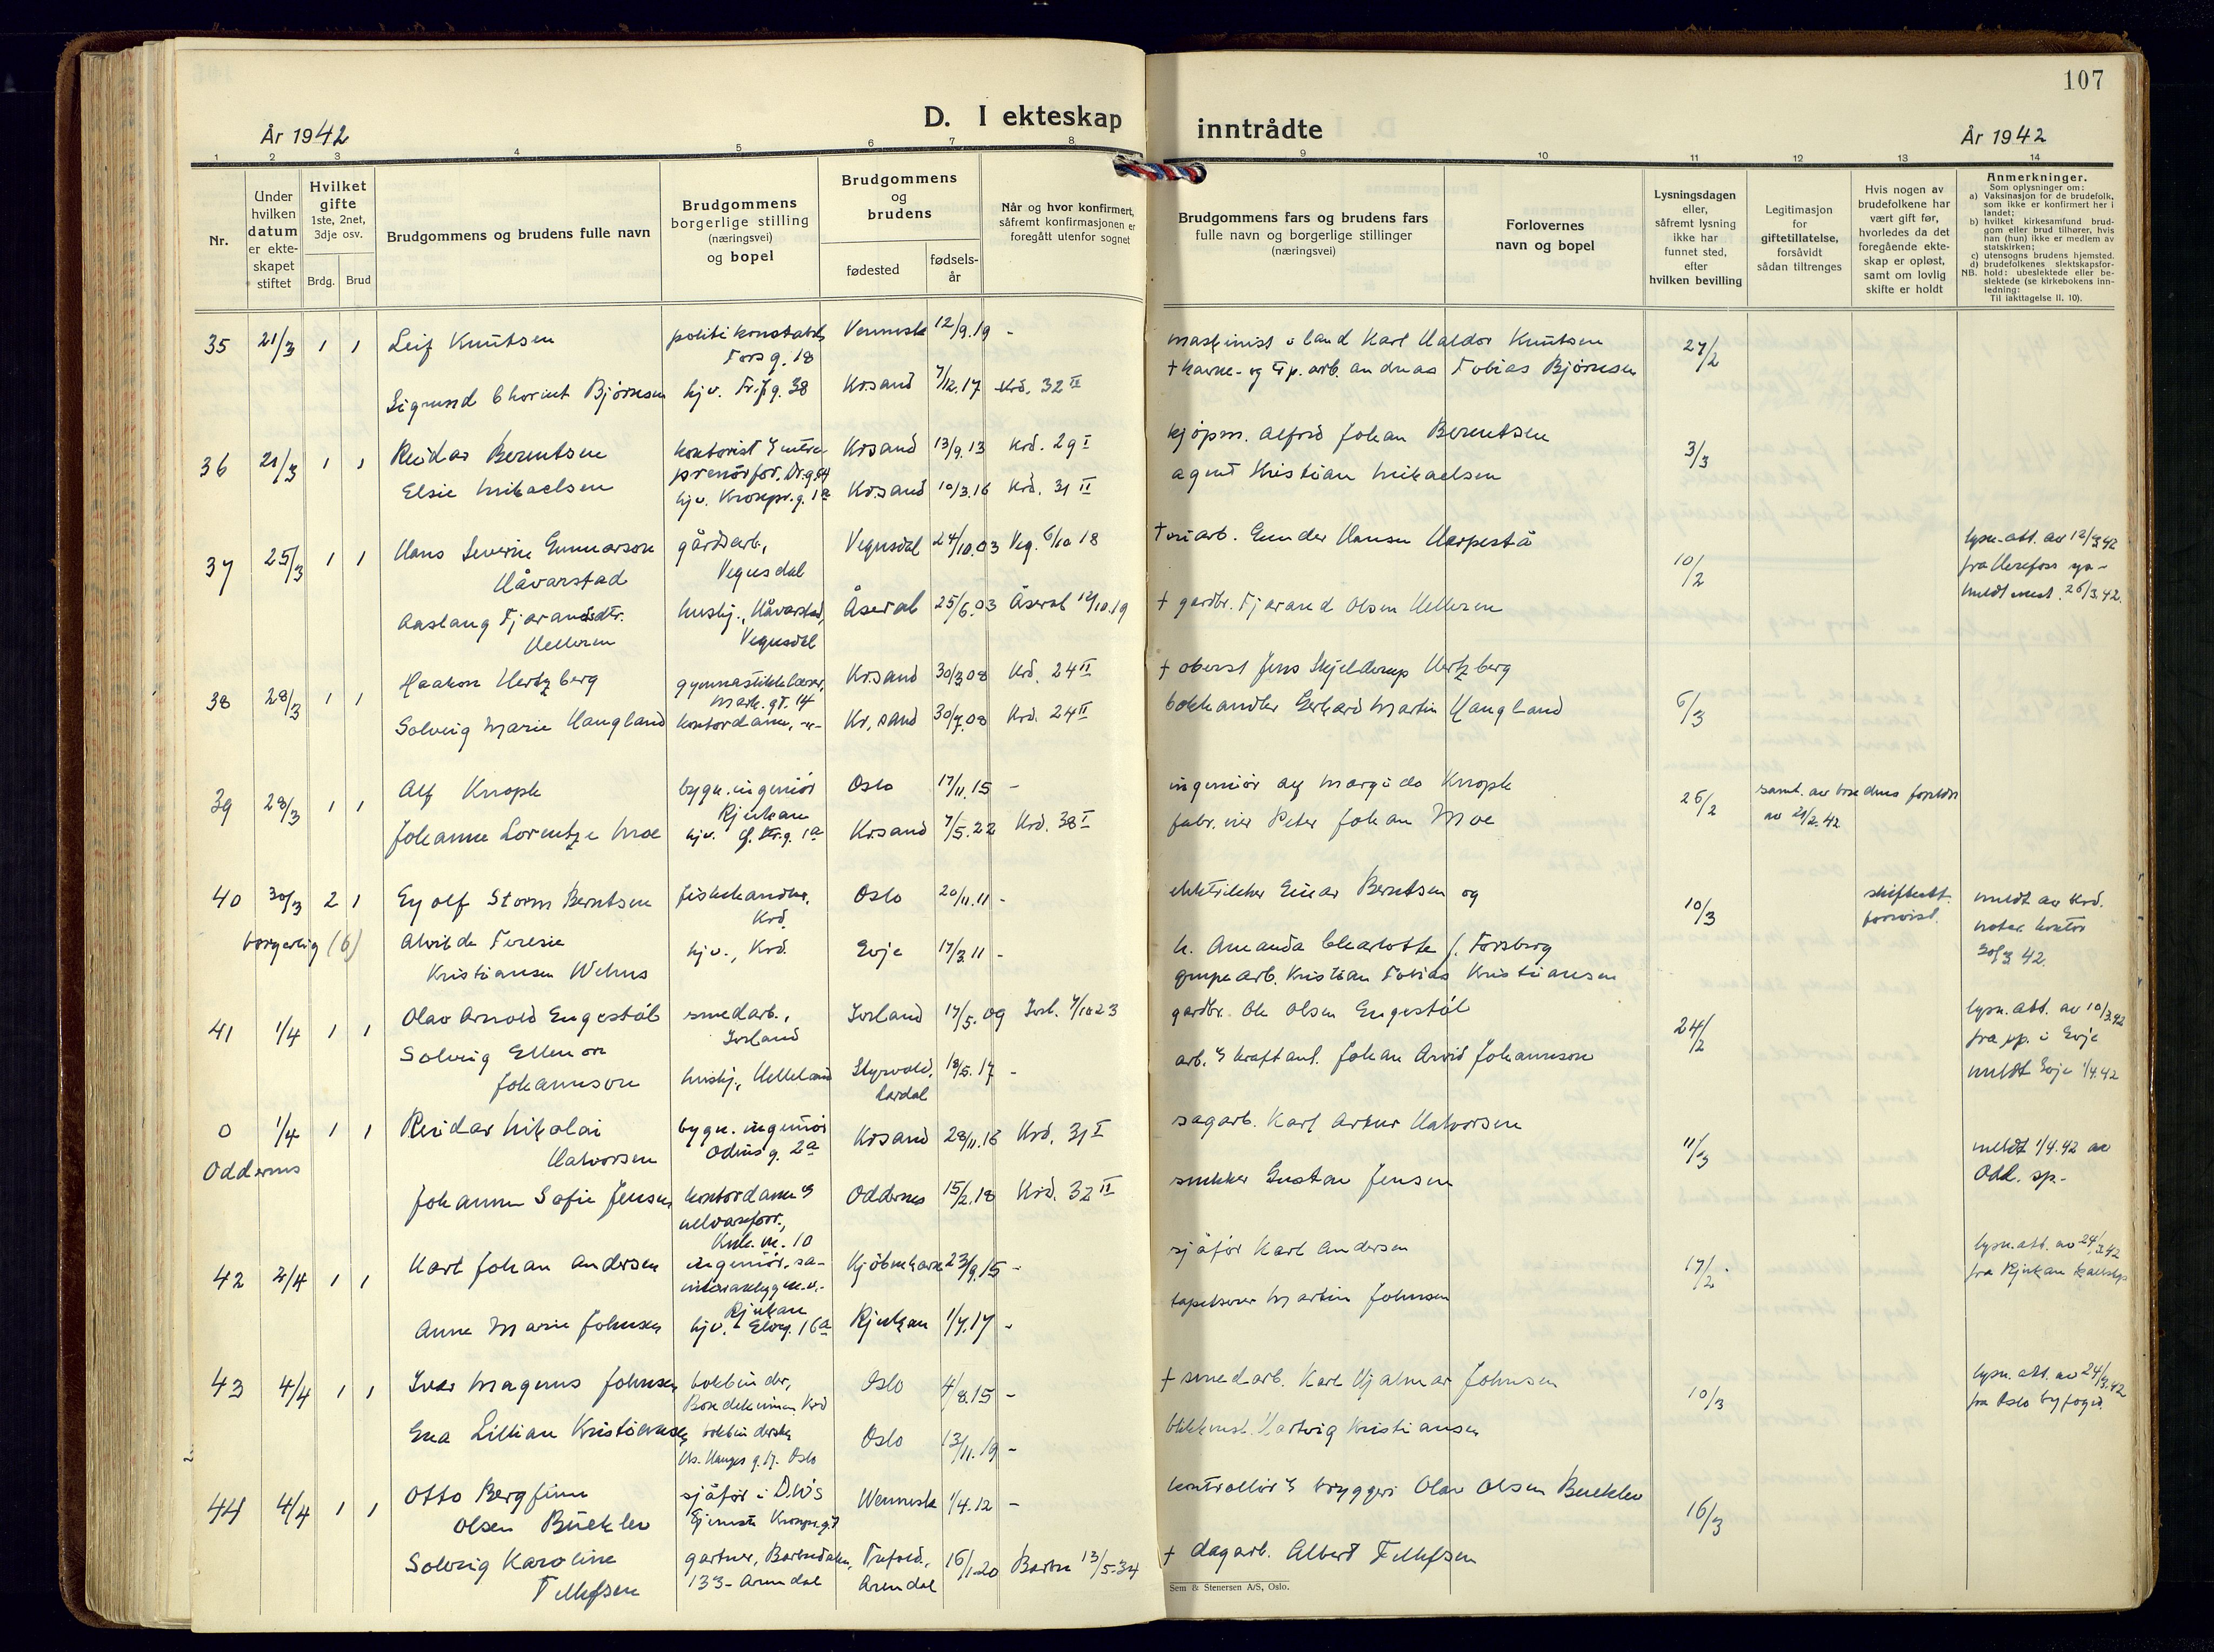 107
D. I ekteskap inntrådte
År 1942
År 1942
1 2 3 4 5 6 7 8 9 10 11 12 13 14
Nr.
Under
hvilken
datum
er ekte-
skapet
stiftet
Hvilket
gifte
1ste, 2net,
3dje osv.
Brdg. Brud
Brudgommens og brudens fulle navn
Brudgommens
borgerlige stilling
(næringsvei)
og bopel
Brudgommens
og
brudens
fødested
fødsels-
år
Når og hvor konfirmert,
såfremt konfirmasjonen er
foregått utenfor sognet
Brudgommens fars og brudens fars
fulle navn og borgerlige stillinger
(næringsvei)
Forlovernes
navn og bopel
Lysningsdagen
eller,
såfremt lysning
ikke har
funnet sted,
efter
hvilken bevilling
Legitimasjon
for
giftetillatelse,
forsåvidt
sådan tiltrenges
Hvis nogen av
brudefolkene har
vært gift før,
hvorledes da det
foregående ekte-
skap er opløst,
samt om lovlig
skifte er holdt
Anmerkninger.
Som oplysninger om:
a) Vaksinasjon for de brudefolk,
som ikke er konfirmert her i
landet;
b) hvilket kirkesamfund brud-
gom eller brud tilhører, hvis
han (hun) ikke er medlem av
statskirken;
c) utensogns brudens hjemsted.
d) brudefolkenes slektskapsfor-
NB. hold: ubeslektede eller be-
slektede (se kirkebokens inn-
ledning:
Til iakttagelse II, 10).
35 21/3 1 1 Leif Knutsen politikonstabel Vennesla 12/9.19 - maskinist i land Karl Haldor Knutsen 27/2
Tors g. 18
Sigrund Thorine Bjørnsen hjv. Kr.sand 7/12.17 Krd. 32 II Andreas Tobias Bjørnsen
36 21/3 1 1 Reidar Berentsen kontorist Kr.sand 13/9.13 Krd. 29 I kjøpm. Alfred Johan Berentsen 3/3
Elsie Mikaelsen hjv. Kronpr.g. 1a Kr.sand 10/3.16 Krd. 31 II agent Kristian Mikaelsen
37 25/3 1 1 Hans Severin Gunnarson gårdsarb., Vegusdal 24/10.03 Veg. 6/10 18 Gunder Hansen 10/2 lysn.att. av 12/3.42
Håvarstad Vegusdal fra Herefoss
Aaslaug Fjaransdtr. hushj., Håvarstad, Åseral 25/6.03 Åseral 12/10.19 † gardbr. Fjarand Olsen Helleren 26/3.42.
Helleren Vegusdal
38 28/3 1 1 Haakon Hertzberg gymnastikklærer, Kr.sand 30/3.08 Krd. 24 II † oberst Jens Skjelderup Hertzberg 6/3
Mark. gt. 14
Solveig Marie Haugland kontordame, -"- Kr.sand 30/7.08 Krd. 24 II bokhandler Gerhard Martin Haugland
39 28/3 1 1 Alf Knoph bygn.ingeniør Oslo 17/11.15 - ingeniør Alf Margido Knoph 26/2 samt. av brudens foreldre
Rjukan av 21/2.42
Johanne Lorentze Moe hjv. Kr.sand 7/5.22 Krd. 38 I fabr.eier Peter Johan Moe
40 30/3 2 1 Eyolf Storm Berntsen fiskehandler, Oslo 20/11.11 - elektriker Einar Berntsen og 10/3 skifteatt. meldt av Krd.
borgerlig (6) Krd. forevist. notar. kontor
Alvilde Teresie hjv., Krd. Evje 17/3.11 - h. Amanda Charlotte f. Forsberg 30/3 42
Kristiansen Wehus grupearb. Kristian Tobias Kristiansen
41 1/4 1 1 Olav Arnold Engestøl smedarb., Iveland 17/5.09 Ivel. 7/10 23 gardbr. Ole Olsen Engestøl 24/2 lysn.att. av 10/3.42
Iveland fra sp. i Evje
Solveig Ellenor hushj., Helleland Skyvold, 18/5.17 - arb. Johan Arvid Johannson meldt Evje 1/4.42
Johannson
0 1/4 1 1 Reidar Nikolai bygn. ingeniør Kr.sand 28/11.16 Krd. 31 I sagarb. Karl Artur Halvorsen 11/3 meldt 1/4.42 av
Oddernes Halvorsen Odins g. 2a Odd. sp.
Johanne Sofie Jensen kontordame Oddernes 15/2.18 Krd. 32 II snekker Gustav Jensen
42 2/4 1 1 Karl Johan Andersen ingeniør, Kjøbenhavn 23/9.15 - sjåfør Karl Andersen 17/2 lysn.att. av 24/3.42
Rjukan fra Rjukan
Anne Marie Johnsen hjv. Elveg. 16a Rjukan 1/7.17 - tapetserer Martin Johnsen
43 4/4 1 1 Ivar Magnus Johnsen bokbinder, Oslo 4/8.15 - † smedarb. Karl Hjalmar Johnsen 10/3 lysn. att. av 24/3.42
fra Oslo byfogd.
Eva Lillian Kristiansen bokbinderske Oslo 13/11.19 - blikkensl. Hartvig Kristiansen
Hs. Hauges g. Oslo
44 4/4 1 1 Otto Bergfinn sjåfør i D.W.s Vennesla 1/4.12 - kontrollør bryggeri Olav Olsen Bueklev 16/3
Olsen Bueklev tjeneste
Solveig Karoline gartner, Barbudalen, Trefold., 16/1.20 Barbu 13/5.34 † dagarb. Albert Tellefsen
Tellefsen 133 - Arendal Arendal
Sem & Stenersen A/S, Oslo.